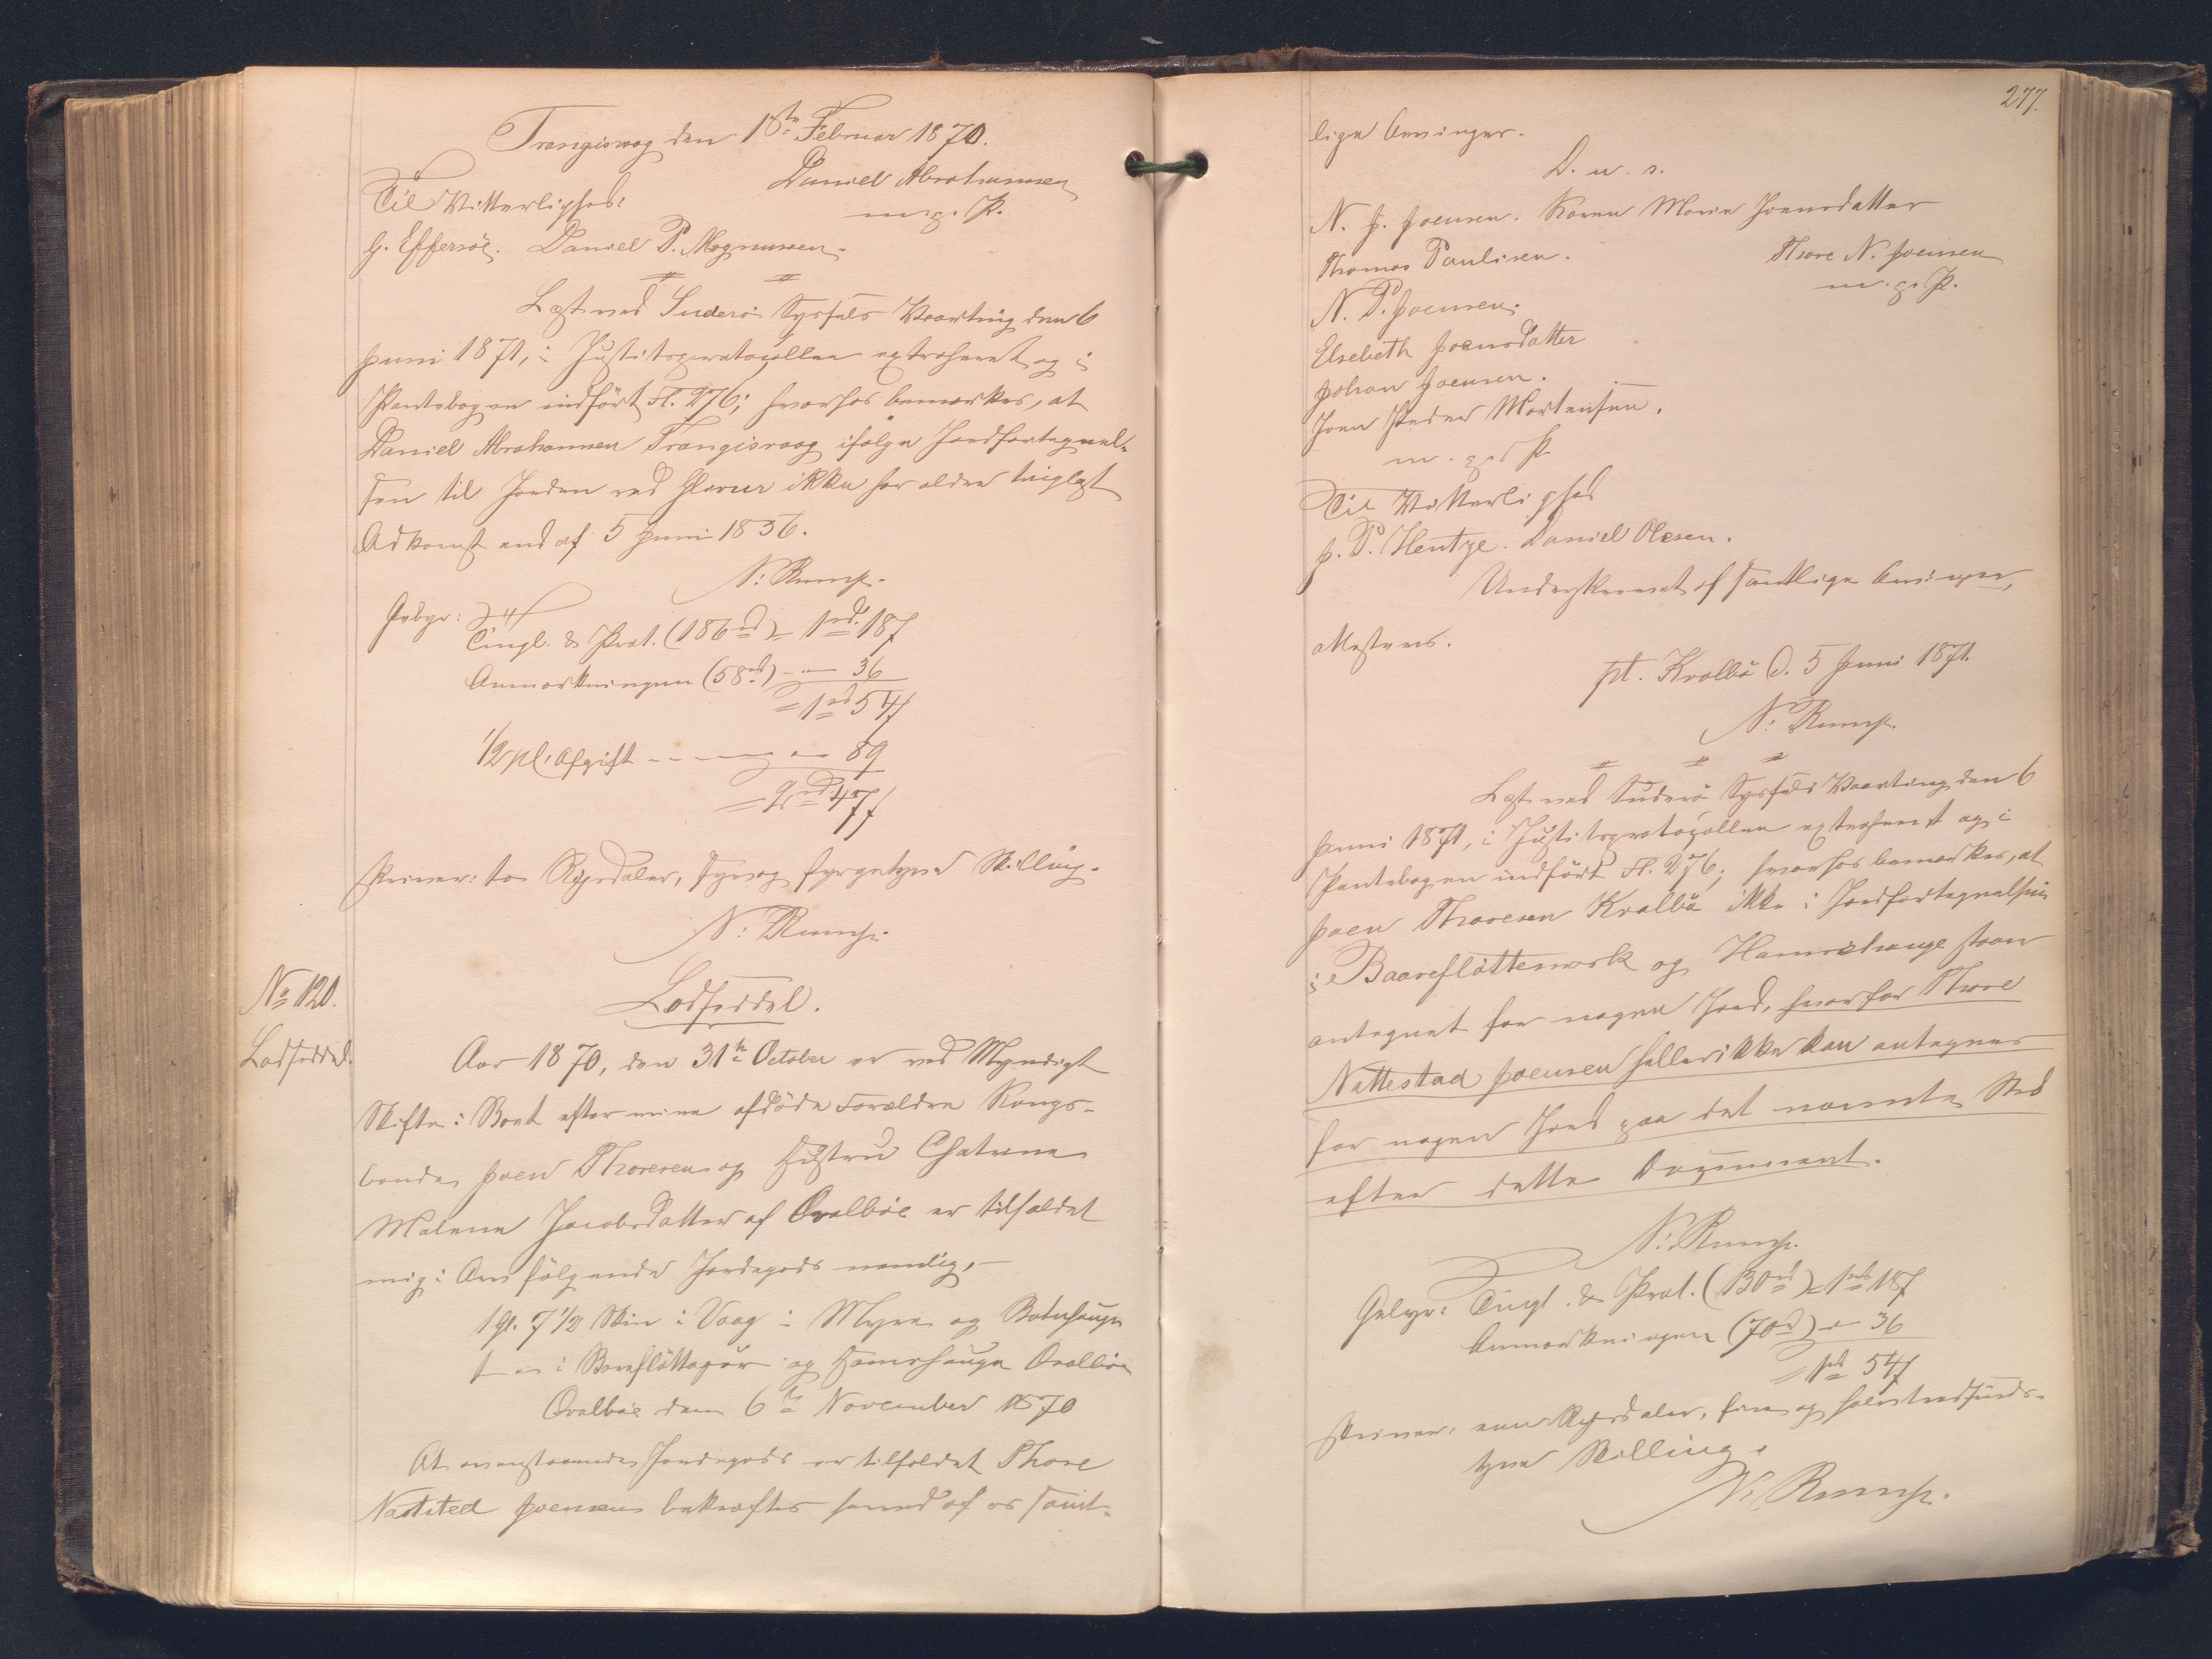 Trangisvaag den 18de Februar 1870.
Daniel Abrahamsen
m. p. P.
Til Vitterlighed:
G. Effersøe. Daniel P. Magnussen.
Læst ved Suderø Syssels Vaarting den 6
Juni 1871, i Justitsprotocollen extraheret og i
Pantebogen indført Fl. 276; hvorhos bemærkes, at
Daniel Abrahamsen Trangisvaag ifølge Jordfortegnel-
sen til Jorden ved har ikke har ældre tinglæst
Adkomst end af 5 Juni 1856.
N: Rump.
Gebyr: 
Tingl. & Prot. (186 rd) = 1 rd. 18 ſ
Anmærkningen (58 rd) - " - 36
= 1 rd 54 ſ
1/2 pCt. Afgift - - - " - 89
= 2 rd 47 ſ
skriver: to Rigsdaler, syv og fyrgetyve Skilling.
N: Rump.
No 120.
Lodseddel.
Lodseddel.
Aar 1870, den 31te October er ved Myndigt
Skifte i Boet efter mine afdøde Forældre Kongs-
bonde Joen Thoresen og Hustru Chatrine
Malene Jacobsdatter af Qvalbøe er tilfaldet
mig i Arv følgende Jordegods nemlig,-
1 Gl. 7 1/2 Skin i Vaag i Myre og Botnhauge
1 " i Borefløttegør og Hamrehauge Qvalbøe
Qvalbøe den 6te November 1870
At ovenstaaende Jordegods er tilfaldet Thore
Nattestad Joensen bekræftes herved af os samt-
277.
lige Arvinger.
D. u. s.
N. J. Joensen. Karen Marie Joensdatter
Thomas Paulisen. Thore N. Joensen
N. P. Joensen. m. p. P.
Elsebeth Joensdatter
Johan Joensen.
Joen Peder Mortensen.
m. p. P.
Til Vitterlighed
J. P. Hentze. Daniel Olesen.
Underskrevet af samtlige Arvinger,
attesteres.
pt. Kvalbø d. 5 Juni 1871.
N: Rump.
Læst ved Suderø Syssels Vaarting den 6
Juni 1871, i Justitsprotocollen extraheret og i
Pantebogen indført Fl. 276; hvorhos bemærkes, at
Joen Thoresen Kvalbø ikke i Jordfortegnelsen
i Baareflöttemærk og Hamrehauge staar
antegnet for nogen Jord, hvorfor Thore
Nattestad Joensen heller ikke kan antegnes
for nogen Jord paa det nævnte Sted
efter dette Document.
N: Rump.
Gebyr: Tingl. & Prot. (130 rd) = 1 rd 18 ſ
Anmærkningen (70 rd) - " - 36
= 1 rd 54 ſ
skriver: een Rigsdaler, fire og halvtredsinds-
tyve Skilling.
N: Rump.